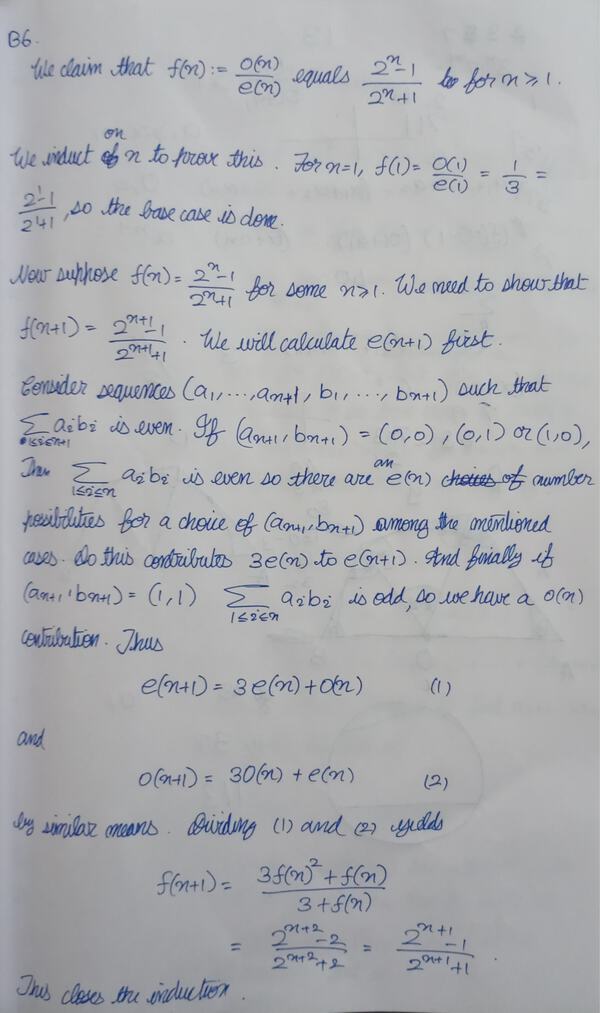 B6.
We claim that f(n) := O(n)/e(n) equals (2^n - 1)/(2^n + 1) for n ⩾ 1.
We induct on n to prove this. For n=1, f(1) = O(1)/e(1) = 1/3 =
(2^1 - 1)/(2^1 + 1), so the base case is done.
Now suppose f(n) = (2^n - 1)/(2^n + 1) for some n ⩾ 1. We need to show that
f(n+1) = (2^{n+1} - 1)/(2^{n+1} + 1). We will calculate e(n+1) first.
Consider sequences (a_1, ..., a_{n+1}, b_1, ..., b_{n+1}) such that
∑_{0≤i≤n+1} a_i b_i is even. If (a_{n+1}, b_{n+1}) = (0,0), (0,1) or (1,0),
Then ∑_{1≤i≤n} a_i b_i is even so there are an e(n) number
possibilities for a choice of (a_{n+1}, b_{n+1}) among the mentioned
cases. So this contributes 3e(n) to e(n+1). And finally if
(a_{n+1}, b_{n+1}) = (1,1) ∑_{1≤i≤n} a_i b_i is odd, so we have a O(n)
contribution. Thus
e(n+1) = 3e(n) + O(n) (1)
and
O(n+1) = 3O(n) + e(n) (2)
by similar means. Dividing (1) and (2) yields
f(n+1) = (3f(n)^2 + f(n))/(3 + f(n))
= (2^{n+2} - 2)/(2^{n+2} + 2) = (2^{n+1} - 1)/(2^{n+1} + 1).
This closes the induction.